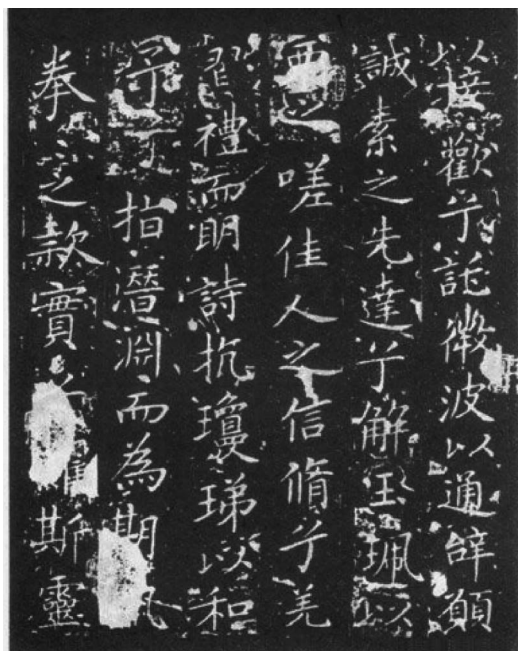 以接歡兮託微波以通辝願
誠素之先達兮解玉珮以
要之嗟佳人之信脩兮羌
習禮而眀詩抗瓊珶以和
予兮指潛淵而為期執
拳〻之款實兮懼斯靈